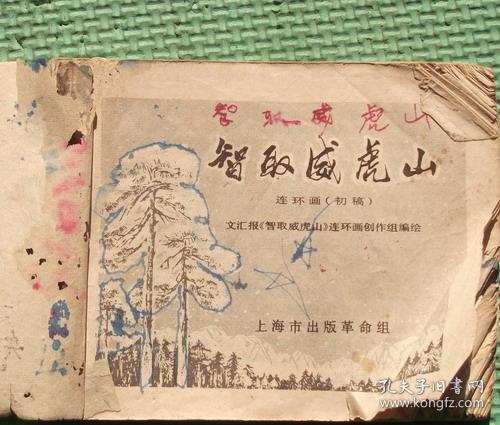 智取威虎山
智取威虎山
连环画（初稿）
文汇报《智取威虎山》连环画创作组编绘
上海市出版革命组
孔夫子旧书网
www.kongfz.com